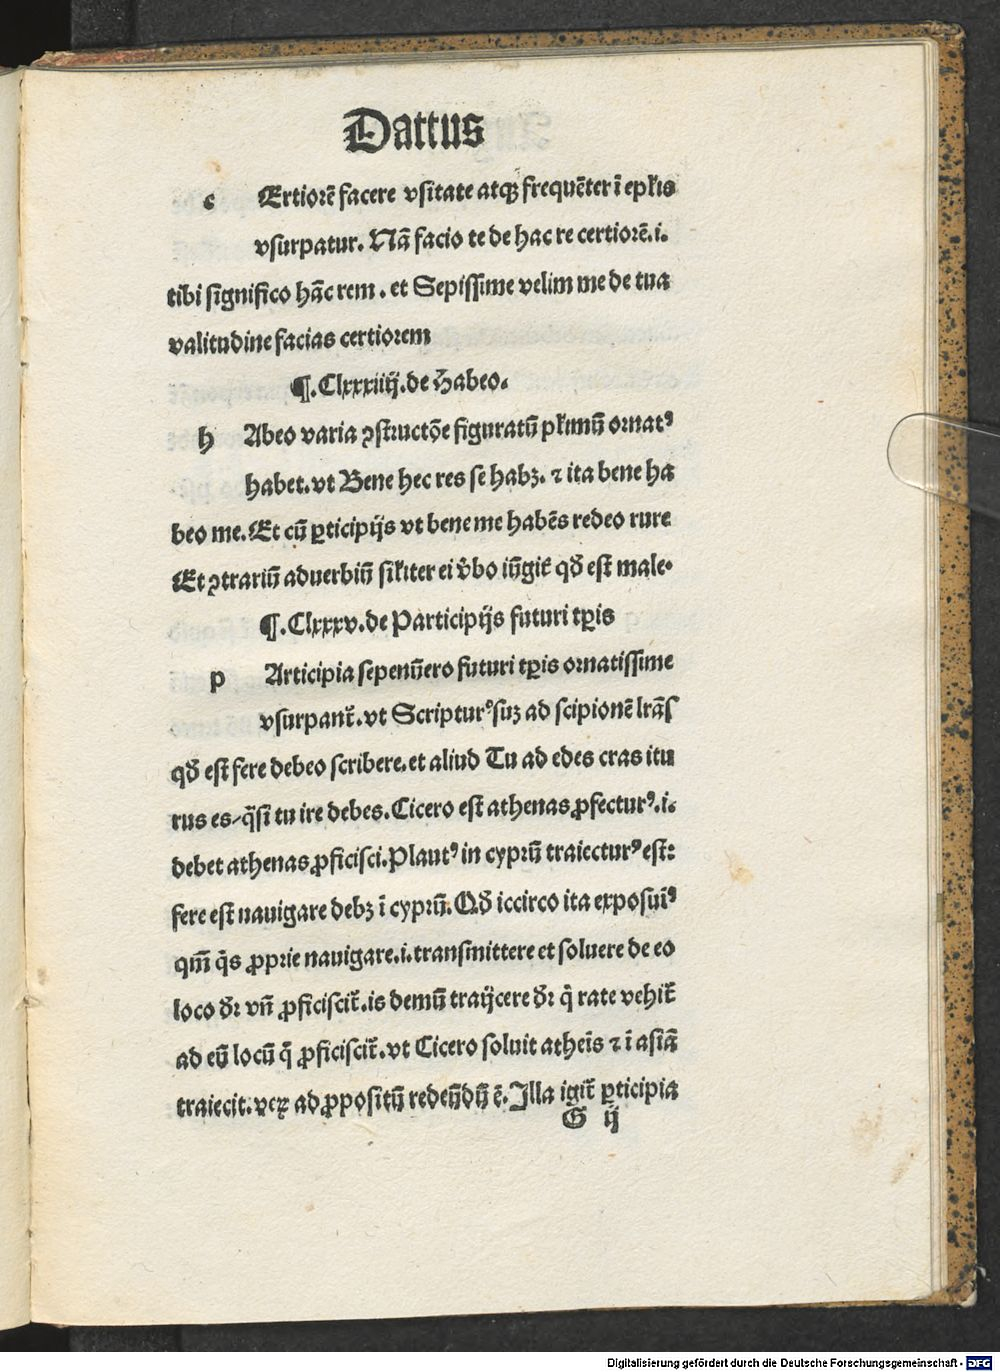 Dattus
c Ertiorē facere vsitate atqꝫ frequēter ī epl̄is
vsurpatur. Nā facio te de hac re certiorē.i.
tibi significo hāc rem. et Sepissime velim me de tua
valitudine facias certiorem
¶.Clxxxiiij.de Habeo.
h Abeo varia ꝯstructōe figuratū pl̄imū ornatꝰ
habet.vt Bene hec res se habꝫ. ⁊ ita bene ha
beo me.Et cū ꝑticipijs vt bene me habēs redeo rure
Et ꝯtrariū aduerbiū sil̄iter ei v̄bo iūgit̄ qd̄ est male.
¶.Clxxxv.de Participijs futuri tꝑis
p Articipia sepenūero futuri tꝑis ornatissime
vsurpant̄.vt Scripturꝰ suꝫ ad scipionē lrās
qd̄ est fere debeo scribere.et aliud Tu ad edes cras itu
rus es/q̄si tu ire debes.Cicero est athenas ꝓfecturꝰ.i.
debet athenas ꝓficisci.Plautꝰ in cyprū traiecturꝰ est:
fere est nauigare debꝫ ī cyprū.Qd̄ iccirco ita exposuīꝰ
qm̄ q̄s ꝓprie nauigare.i.transmittere et soluere de eo
loco dr̄ vn̄ ꝓficiscit̄.is demū traijcere dr̄ q̄ rate vehit̄
ad eū locū q̄ ꝓficiscit̄.vt Cicero soluit atheīs ⁊ ī asiā
traiecit.veꝝ ad ꝓpositū redeūdū ē.Illa igit̄ ꝑticipia
G ij
Digitalisierung gefördert durch die Deutsche Forschungsgemeinschaft - DFG